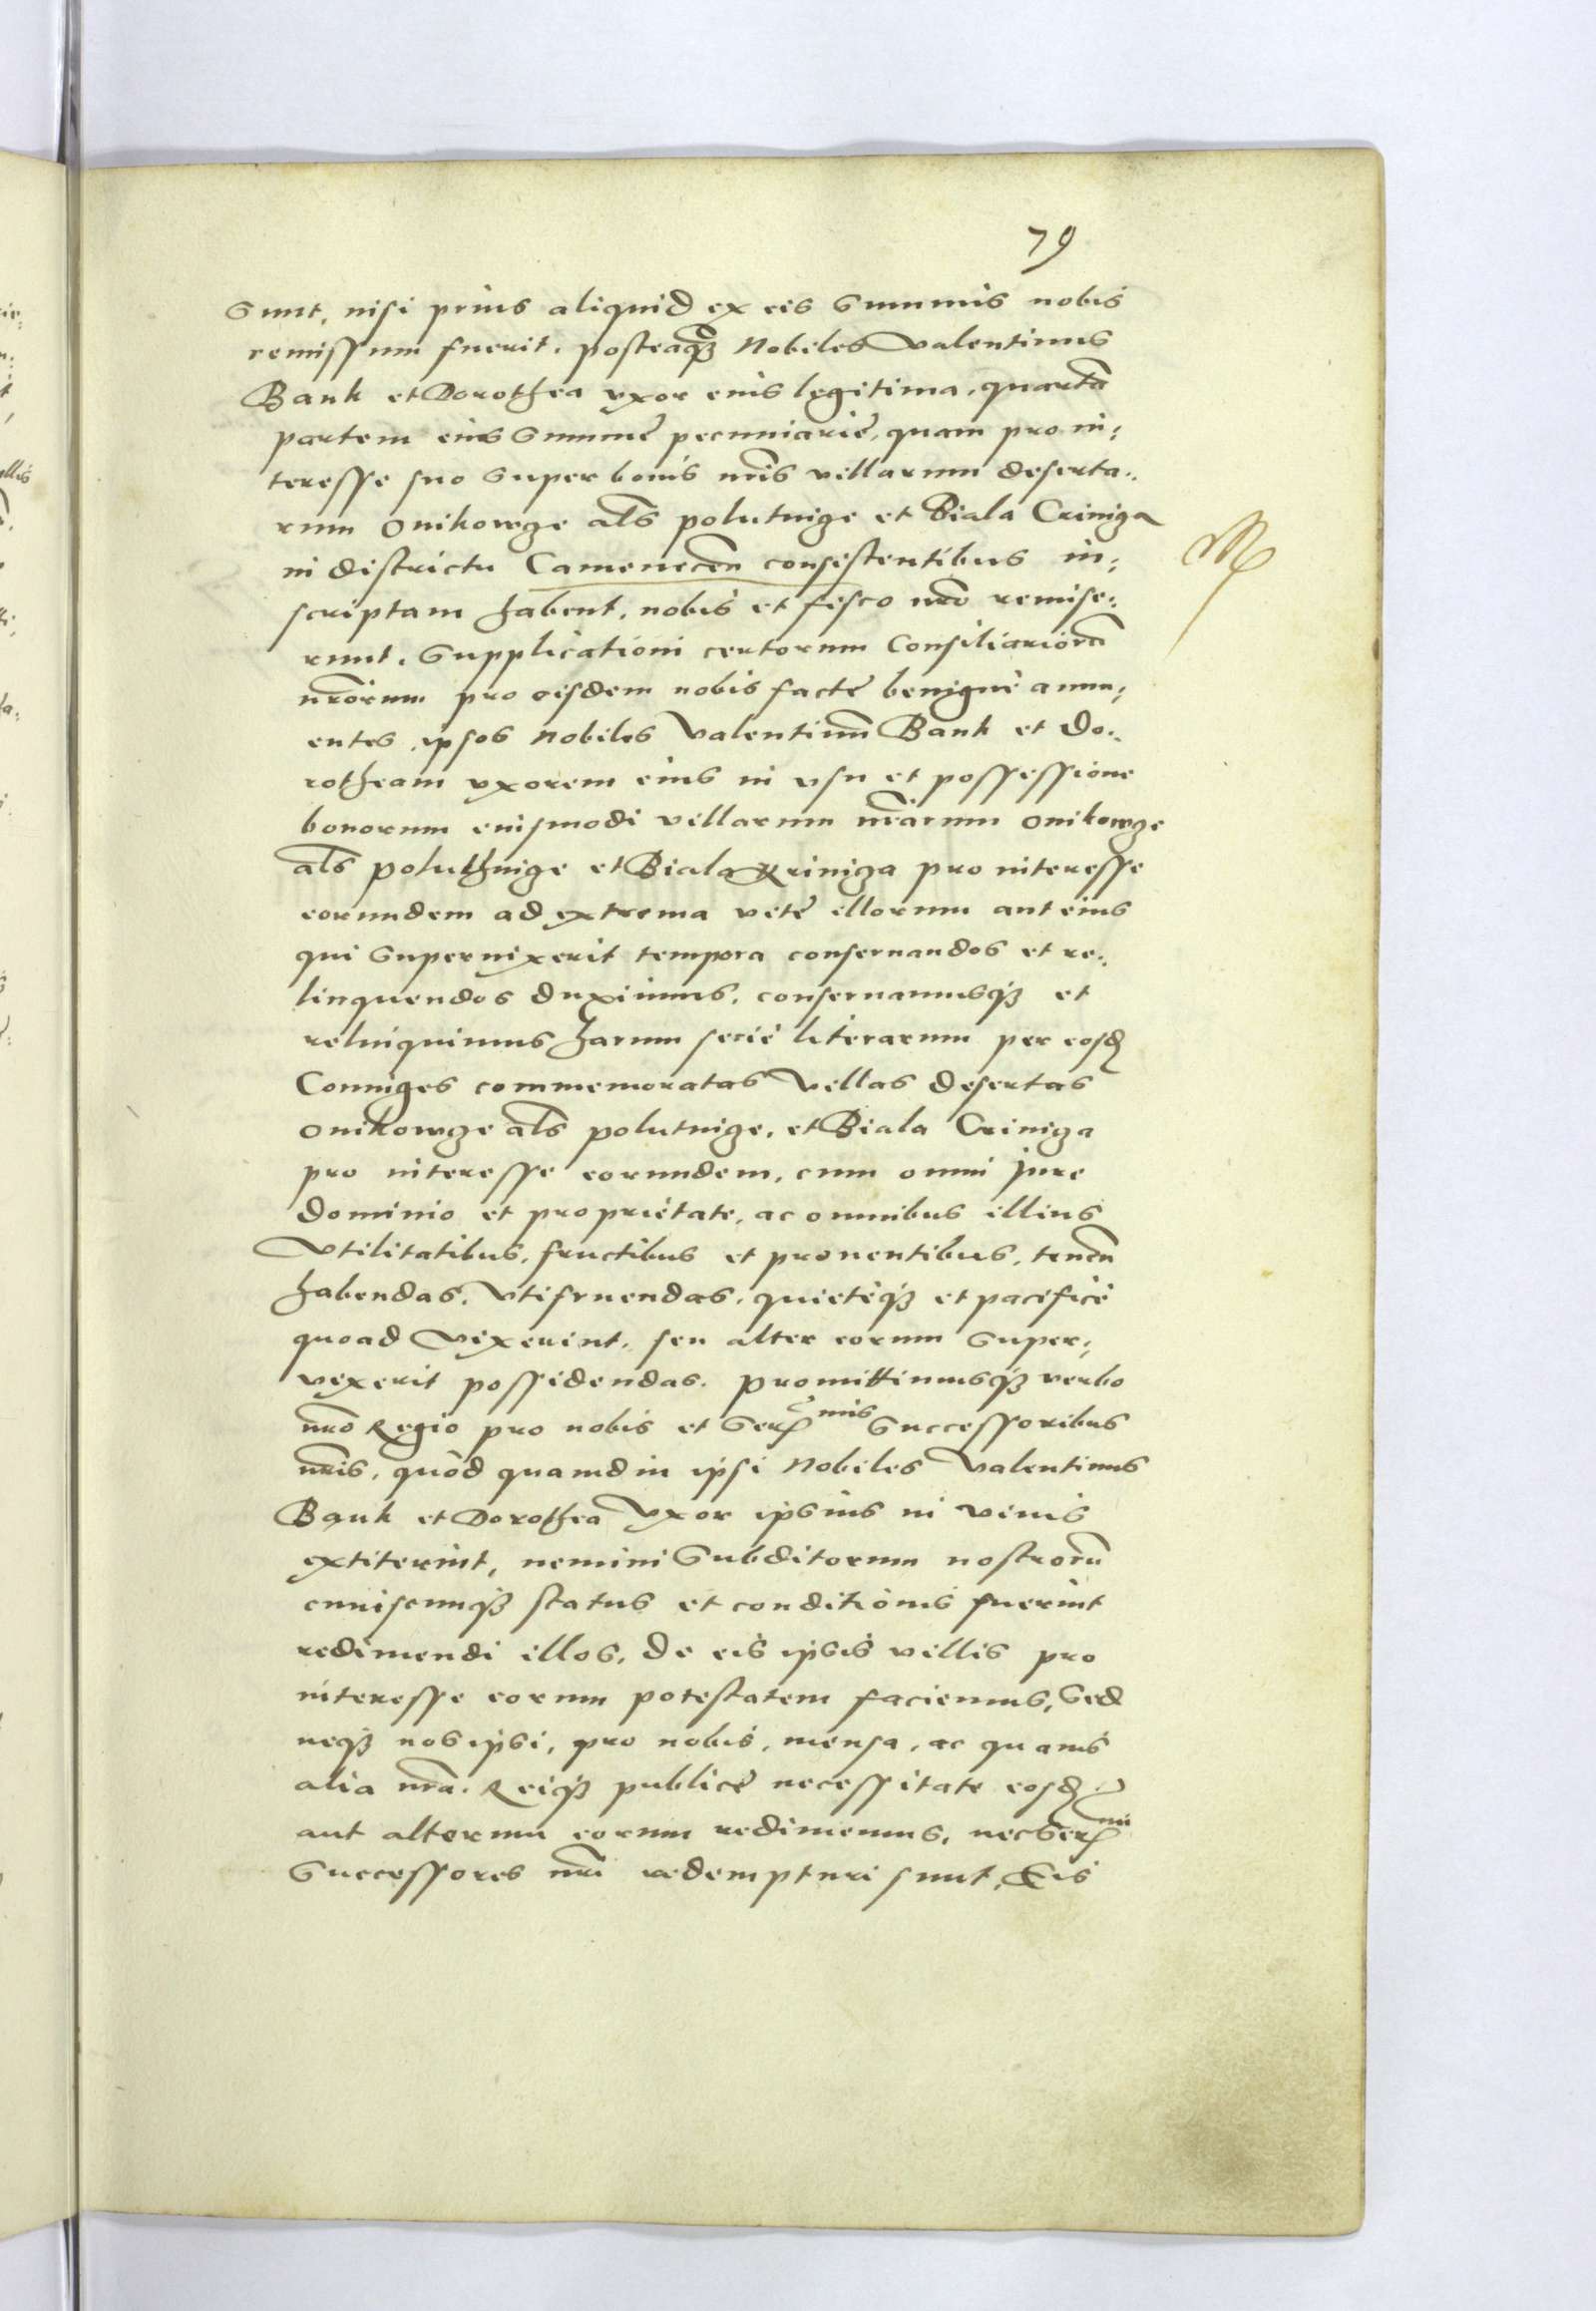 79
sunt, nisi prius aliquid ex eis summis nobis
remissum fuerit. posteaq́ꝫ Nobiles Valentinus
Bank et Dorothea vxor eius legitima, quartā
partem eius summę pecuniarię, quam pro in:
teresse suo super bonis nr̃is villarum deserta:
rum Onikowcze al̃s polutnicze et Biala Criniça
in districtu Camenecen̄ consistentibus in:
scriptam habent, nobis et fisco nr̃o remise:
runt. Supplicationi certorum Consiliariorū
nr̃orum pro eisdem nobis factę benignè annu:
entes, ipsos Nobiles Valentinū Bank et Do:
rotheam vxorem eius in vsu et possessione
bonorum eiusmodi villarum nr̃arum Onikowcze
al̃s poluthnicze et Biala Kriniça pro interesse
eorundem ad extrema vitę illorum aut eius
qui supervixerit tempora conservandos et re:
linquendos duximus, conservamusqꝫ et
relinquimus harum serie literarum per eosd̄
Coniuges commemoratas villas desertas
Onikowcze al̃s polutnicze, et Biala Criniça
pro interesse eorundem, cum omni jure
dominio et proprietate, ac omnibus illius
vtilitatibus, fructibus et proventibus, tenen̄
habendas, vtifruendas, quietèqꝫ et pacificè
quoad vixerint, seu alter eorum super:
vixerit possidendas. promittimusqꝫ verbo
nr̃o Regio pro nobis et Ser:mis Successoribus
nr̃is, quòd quamdiu ipsi Nobiles Valentinus
Bank et Dorothea vxor ipsius in vivis
extiterint, nemini Subditorum nostrorū
cuiuscunqꝫ status et conditionis fuerint
redimendi illos, de eis ipsis villis pro
interesse eorum potestatem faciemus, sed
neqꝫ nos ipsi, pro nobis, mensa, ac quavis
alia nr̃a. Reiqꝫ publicę necessitate eosd̄
aut alterum eorum redimemus, nec Ser:mi
Successores nr̃i redempturi sunt, Eis